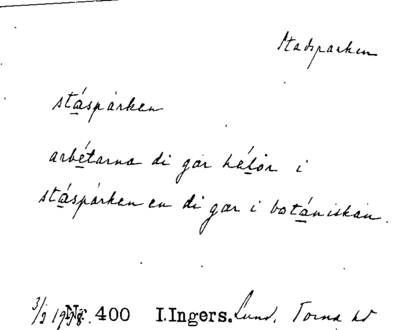 Stadsparken
stáspárken
arbétarna di går hélår i
stáspárken en di går i botániskan.
3/9 1928. Nr 400 I. Ingers. Lund, Torna hd